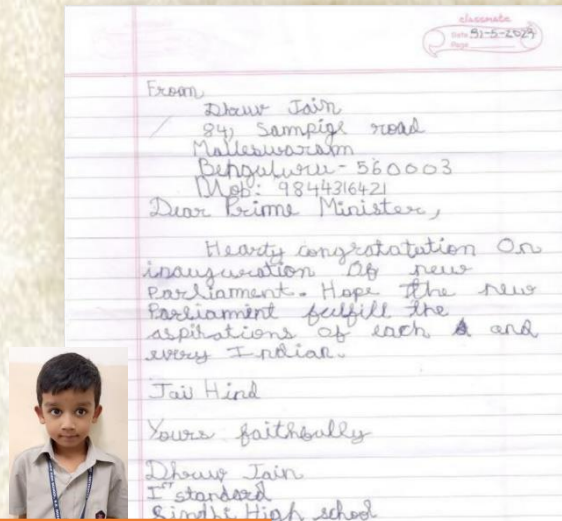 classmate
Date 31-5-2023
Page
From
Dhruv Jain
84, Sampige road
Malleswaram
Bengaluru - 560003
Mob: 9844316421
Dear Prime Minister,
Hearty congratatation On
inauguration Of new
Parliament. Hope the new
Parliament fulfill the
aspirations of each and
every Indian.
Jai Hind
Yours faithfully
Dhruv Jain
Iˢᵗ standard
Sindhi High school